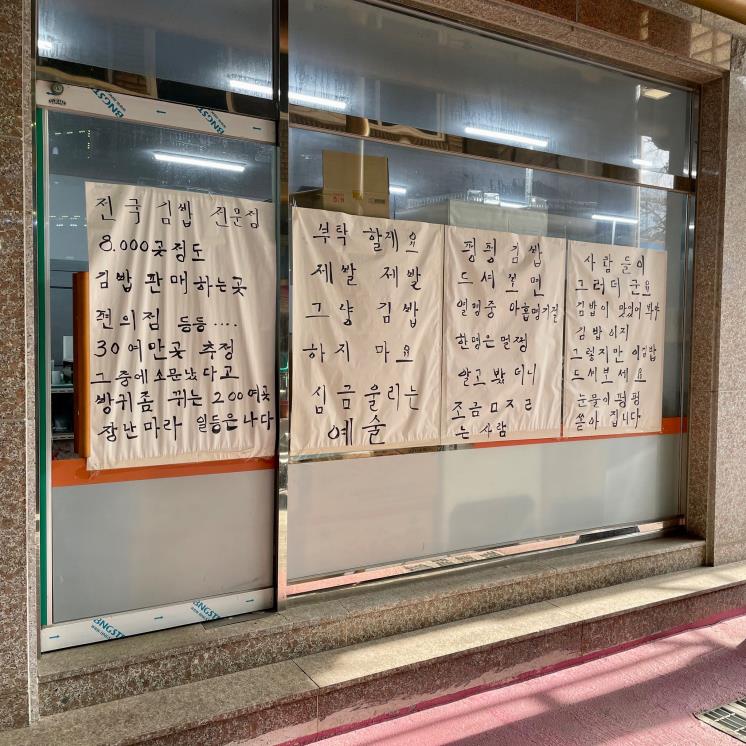 전국 김밥 전문점
8.000곳정도
김밥 판매하는곳
편의점 등등....
30여만곳 추정
그중에소문났다고
방귀좀 뀌는 200여곳
장난마라 일등은 나다
부탁 할께요
제발 제발
그냥 김밥
하지 마요
심금울리는
예술
핑핑 김밥
드셔보면
열명중 아홉명기절
한명은 멀쩡
알고 봤 더니
조금ㅁㅈㄹ
는 사람
사람들이
그러데 군요
김밥이 맛있어 봐야
김밥이지
그렇지만 이김밥
드셔보세요
눈물이 핑핑
쏟아 집니다
BNGSTE
BNGST